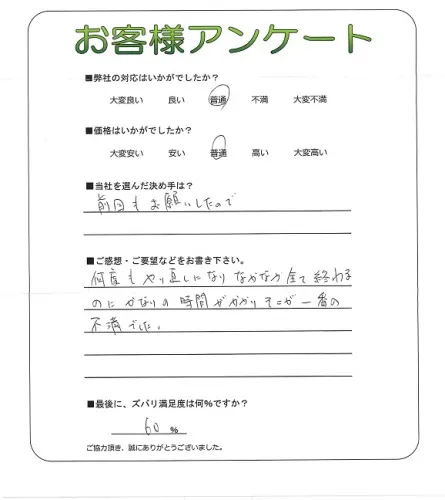 お客様アンケート
■弊社の対応はいかがでしたか？
大変良い 良い 普通 不満 大変不満
■価格はいかがでしたか？
大変安い 安い 普通 高い 大変高い
■当社を選んだ決め手は？
前回もお願いしたので
■ご感想・ご要望などをお書き下さい。
何度もやり直しになりなかなか全て終わる
のにかなりの時間がかかりそこが一番の
不満でした。
■最後に、ズバリ満足度は何％ですか？
60 %
ご協力頂き、誠にありがとうございました。